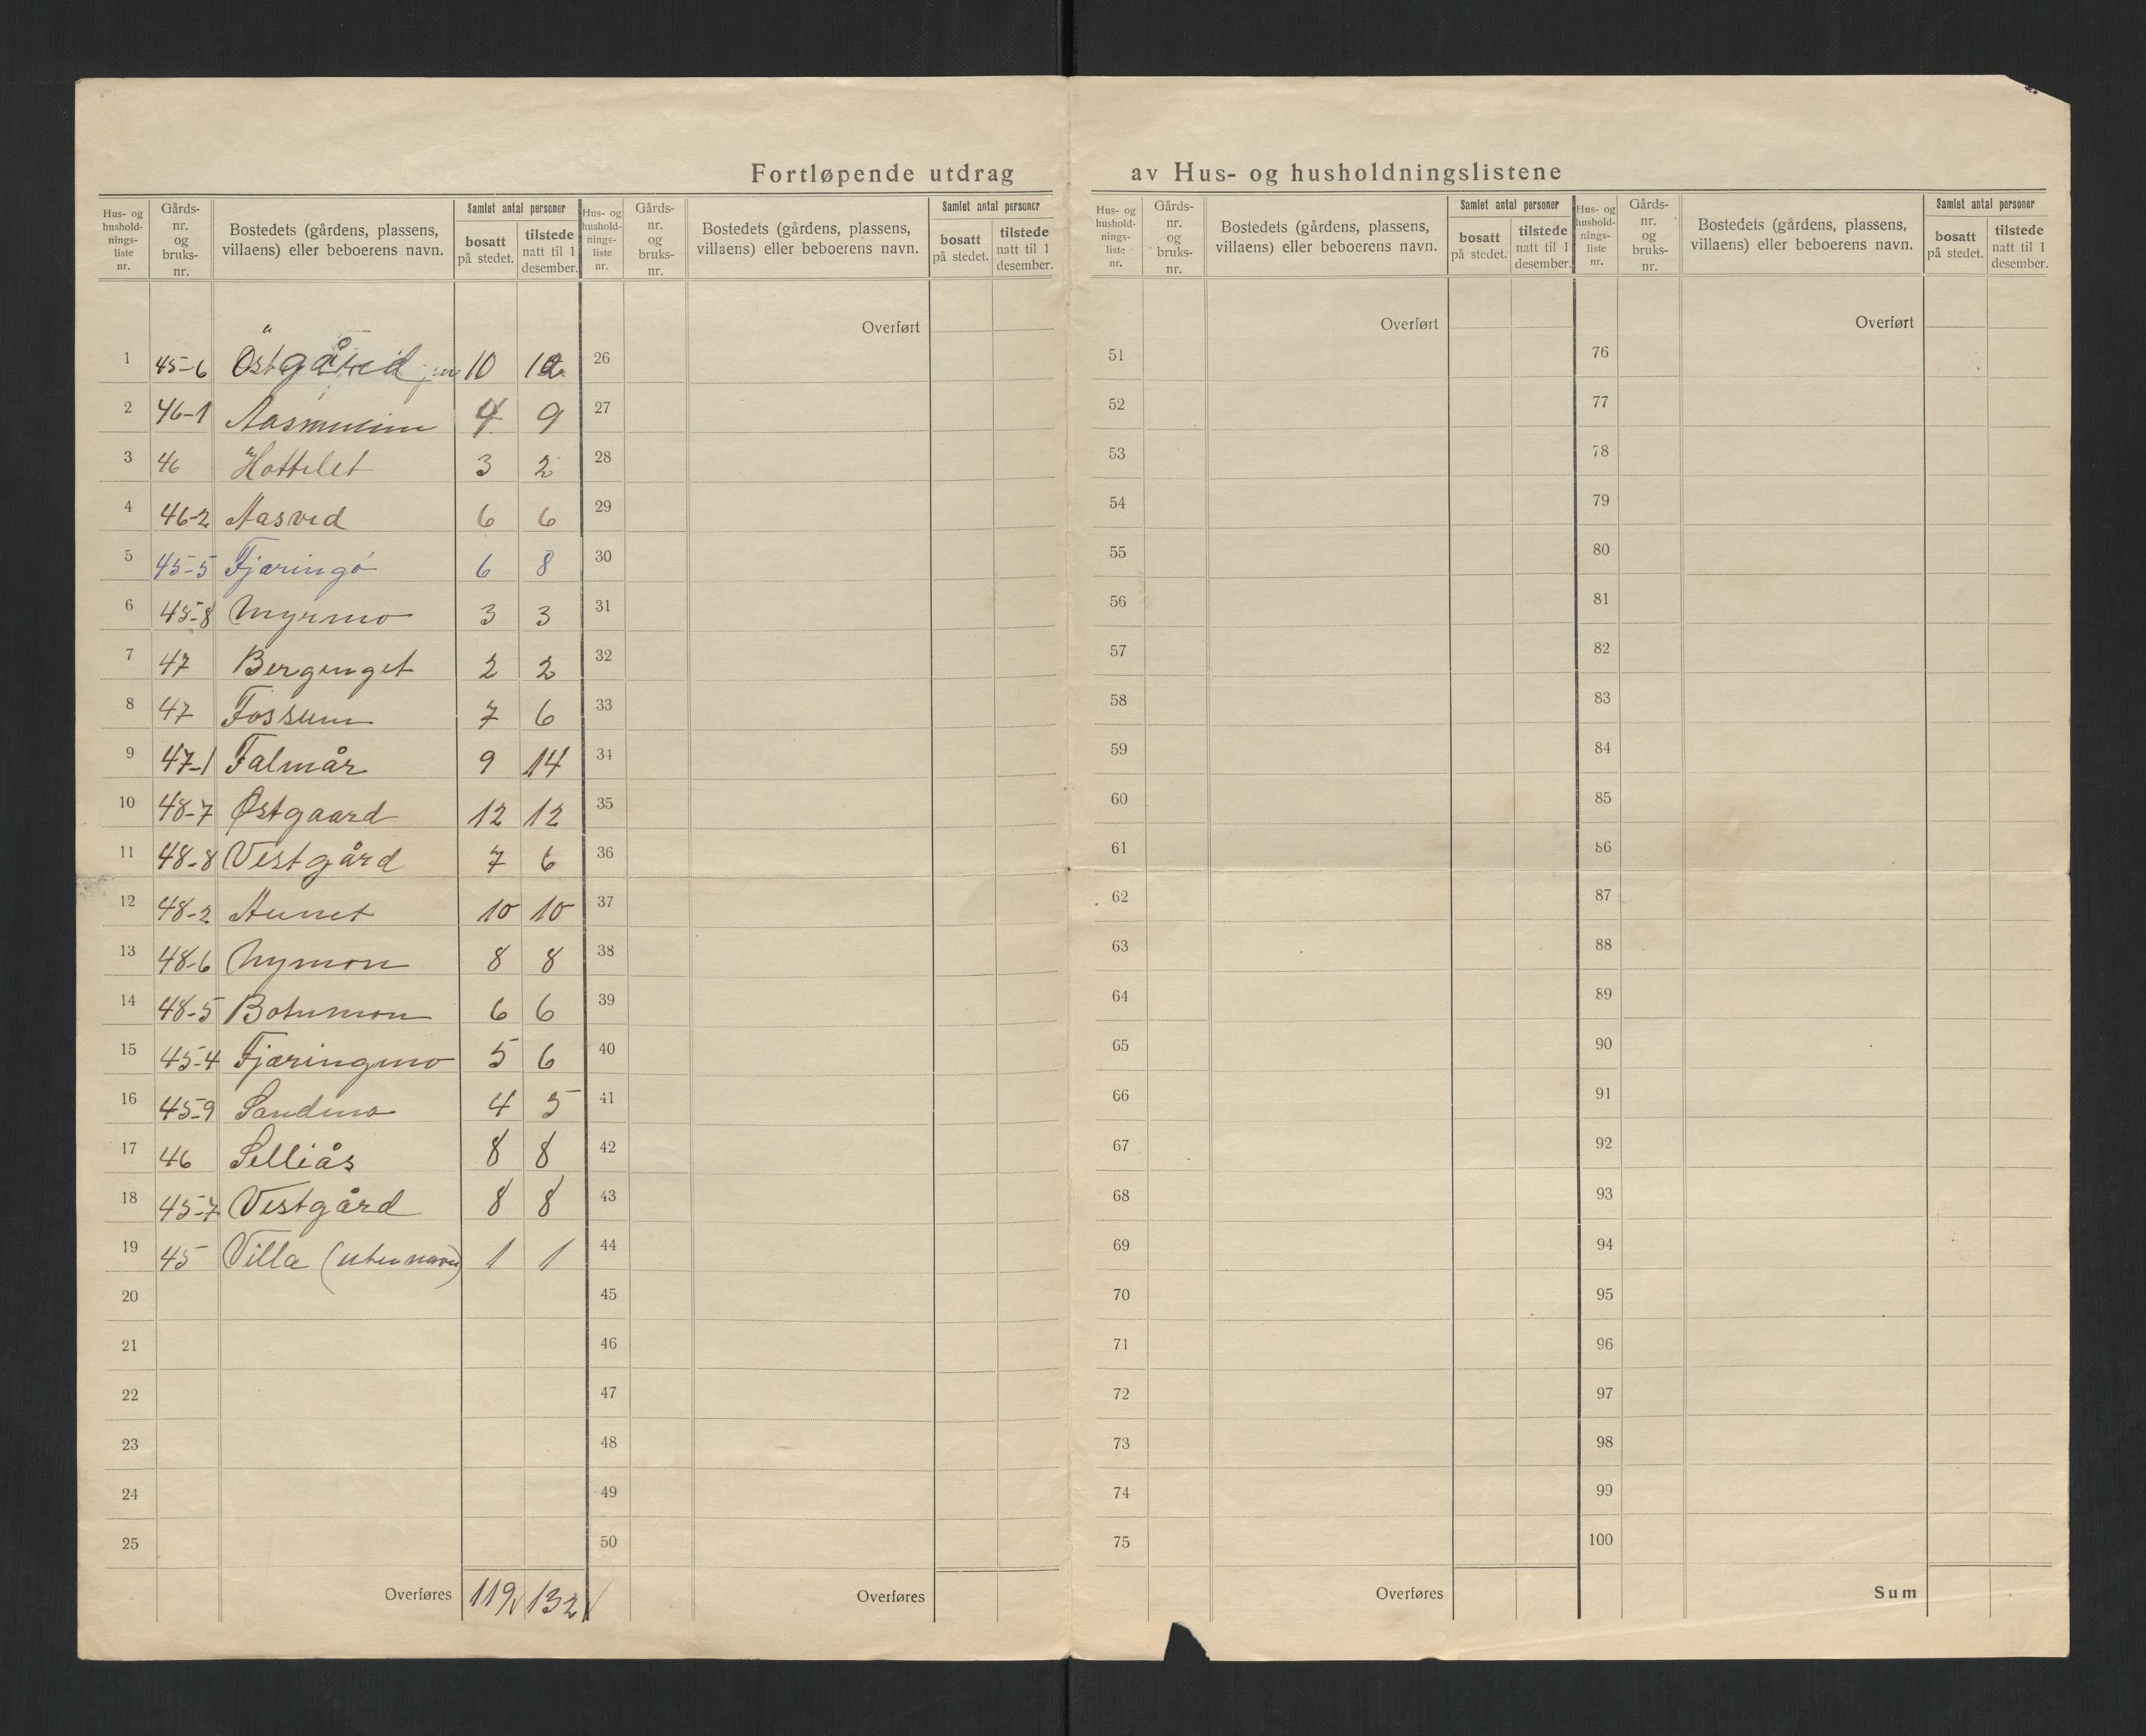 Fortløpende utdrag av Hus- og husholdningslistene
Hus- og hushold- nings- liste nr.
Gårds- nr. og bruks- nr.
Bostedets (gårdens, plassens, villaens) eller beboerens navn.
Samlet antal personer
bosatt på stedet.
tilstede natt til 1 desember.
Hus- og hushold- nings- liste nr.
Gårds- nr. og bruks- nr.
Bostedets (gårdens, plassens, villaens) eller beboerens navn.
Samlet antal personer
bosatt på stedet.
tilstede natt til 1 desember.
Hus- og hushold- nings- liste nr.
Gårds- nr. og bruks- nr.
Bostedets (gårdens, plassens, villaens) eller beboerens navn.
Samlet antal personer
bosatt på stedet.
tilstede natt til 1 desember.
Hus- og hushold- nings- liste nr.
Gårds- nr. og bruks- nr.
Bostedets (gårdens, plassens, villaens) eller beboerens navn.
Samlet antal personer
bosatt på stedet.
tilstede natt til 1 desember.
1 45-6 Östgård 10 12
2 46-1 Aasmuum 4 9
3 46 Hottelet 3 2
4 46-2 Aasved 6 6
5 45-5 Fjæringö 6 8
6 45-8 Myrmo 3 3
7 47 Bergenget 2 2
8 47 Fossum 7 6
9 47-1 Falmår 9 14
10 48-7 Østgaard 12 12
11 48-8 Vestgård 7 6
12 48-2 Aunet 10 10
13 48-6 Nymon 8 8
14 48-5 Botnmon 6 6
15 45-4 Fjæringmo 5 6
16 45-9 Sandmo 4 5
17 46 Selliås 8 8
18 45-7 Vestgård 8 8
19 45 Villa (uten navn) 1 1
20
21
22
23
24
25
Overføres 119 132
Overført
26
27
28
29
30
31
32
33
34
35
36
37
38
39
40
41
42
43
44
45
46
47
48
49
50
Overføres
Overført
51
52
53
54
55
56
57
58
59
60
61
62
63
64
65
66
67
68
69
70
71
72
73
74
75
Overføres
Overført
76
77
78
79
80
81
82
83
84
85
86
87
88
89
90
91
92
93
94
95
96
97
98
99
100
Sum